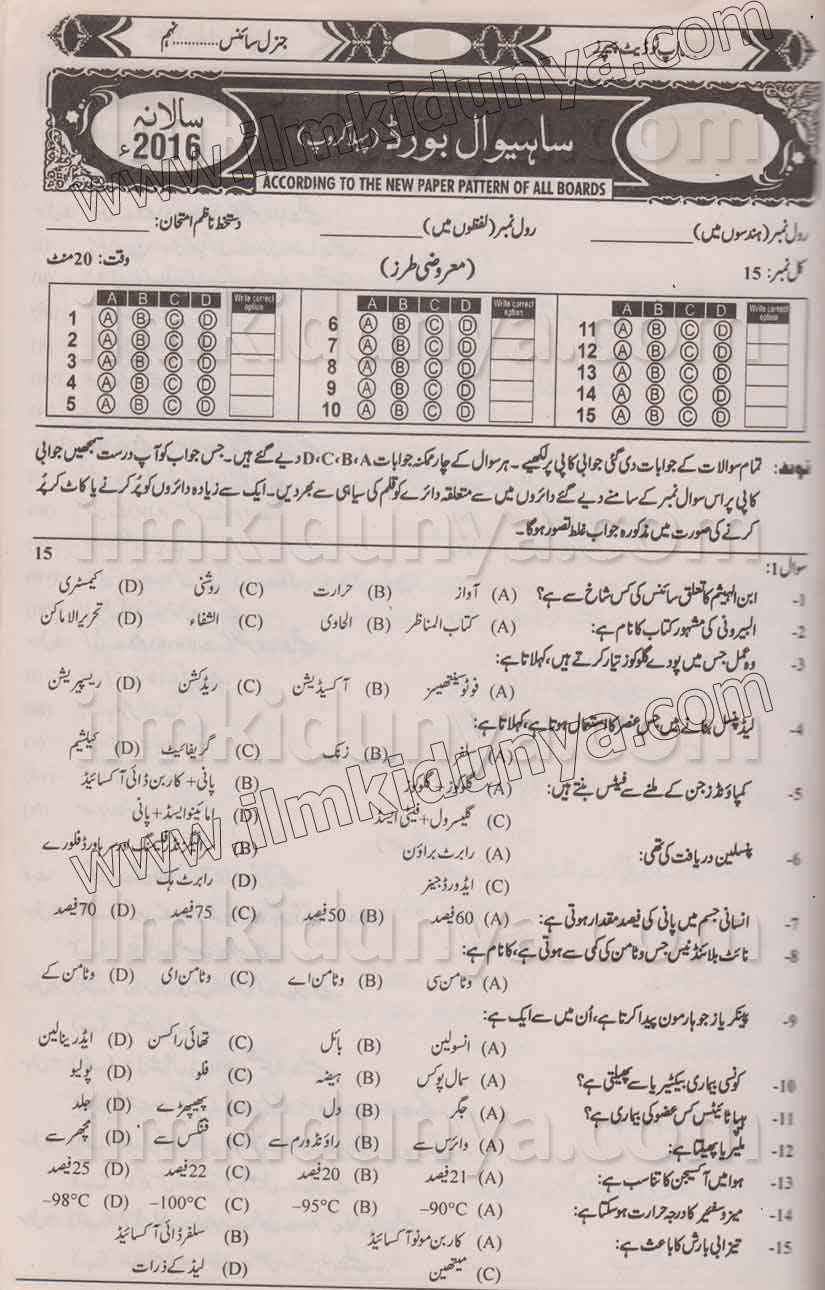 جنرل سائنس............نہم
اپ ٹو ڈیٹ پیپرز
سالانہ
2016ء
ساہیوال بورڈ (پہلا گروپ)
ACCORDING TO THE NEW PAPER PATTERN OF ALL BOARDS
رول نمبر (ہندسوں میں) ____________ رول نمبر (لفظوں میں) ____________ دستخط ناظم امتحان: ____________
کل نمبر: 15 (معروضی طرز) وقت: 20 منٹ
A B C D Write correct option A B C D Write correct option A B C D Write correct option
1 A B C D 6 A B C D 11 A B C D
2 A B C D 7 A B C D 12 A B C D
3 A B C D 8 A B C D 13 A B C D
4 A B C D 9 A B C D 14 A B C D
5 A B C D 10 A B C D 15 A B C D
نوٹ: تمام سوالات کے جوابات دی گئی جوابی کاپی پر لکھیے۔ ہر سوال کے چار ممکنہ جوابات D،C،B،A دیے گئے ہیں۔ جس جواب کو آپ درست سمجھیں جوابی
کاپی پر اس سوال نمبر کے سامنے دیے گئے دائروں میں سے متعلقہ دائرے کو قلم کی سیاہی سے بھر دیں۔ ایک سے زیادہ دائروں کو پُر کرنے یا کاٹ کر پُر
کرنے کی صورت میں مذکورہ جواب غلط تصور ہوگا۔
سوال 1: 15
1- ابن الہیثم کا تعلق سائنس کی کس شاخ سے ہے؟ (A) آواز (B) حرارت (C) روشنی (D) کیمسٹری
2- البیرونی کی مشہور کتاب کا نام ہے: (A) کتاب المناظر (B) الحاوی (C) الشفاء (D) تحریر الاماکن
3- وہ عمل جس میں پودے گلوکوز تیار کرتے ہیں، کہلاتا ہے:
(A) فوٹوسینتھیسز (B) آکسیڈیشن (C) ریڈکشن (D) ریسپریشن
4- لیڈ پنسل بنانے میں جس عنصر کا استعمال ہوتا ہے، کہلاتا ہے:
(A) سلفر (B) زنک (C) گریفائیٹ (D) کیلشیم
5- کمپاؤنڈز جن کے ملنے سے فیٹس بنتے ہیں: (A) گلوکوز + گلوکوز (B) پانی + کاربن ڈائی آکسائیڈ
(C) گلیسرول + فیٹی ایسڈ (D) امائینو ایسڈ + پانی
6- پنسلین دریافت کی تھی: (A) رابرٹ براؤن (B) سر الیگزینڈر فلیمنگ اور سر ہاورڈ فلورے
(C) ایڈورڈ جینر (D) رابرٹ ہک
7- انسانی جسم میں پانی کی فیصد مقدار ہوتی ہے: (A) 60 فیصد (B) 50 فیصد (C) 75 فیصد (D) 70 فیصد
8- نائٹ بلائنڈنیس جس وٹامن کی کمی سے ہوتی ہے، کا نام ہے:
(A) وٹامن سی (B) وٹامن اے (C) وٹامن ای (D) وٹامن کے
9- پینکریاز جو ہارمون پیدا کرتا ہے، اُن میں سے ایک ہے:
(A) انسولین (B) بائل (C) تھائی راکسن (D) ایڈرینالین
10- کونسی بیماری بیکٹیریا سے پھیلتی ہے؟ (A) سمال پوکس (B) ہیضہ (C) فلو (D) پولیو
11- ہیپاٹائیٹس کس عضو کی بیماری ہے؟ (A) جگر (B) دل (C) پھیپھڑے (D) جلد
12- ملیریا پھیلتا ہے: (A) وائرس سے (B) راؤنڈ ورم سے (C) فنگس سے (D) مچھر سے
13- ہوا میں آکسیجن کا تناسب ہے: (A) 21 فیصد (B) 20 فیصد (C) 22 فیصد (D) 25 فیصد
14- میزوسفیئر کا درجہ حرارت ہو سکتا ہے: (A) –90°C (B) –95°C (C) –100°C (D) –98°C
15- تیزابی بارش کا باعث ہے: (A) کاربن مونو آکسائیڈ (B) سلفر ڈائی آکسائیڈ
(C) میتھین (D) لیڈ کے ذرات
www.ilmkidunya.com
www.ilmkidunya.com
ilmkidunya.com
ilmkidunya.com
ilmkidunya.com
ilmkidunya.com
ilmkidunya.com
ilmkidunya.com